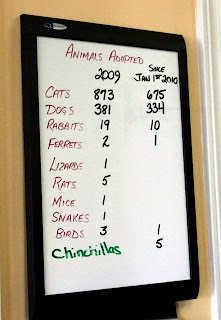 ANIMALS ADOPTED
2009 SINCE JAN 1ST 2010
CATS 873 675
DOGS 381 334
RABBITS 19 10
FERRETS 2 1
LIZARDS 1
RATS 5
MICE 1
SNAKES 1
BIRDS 3 1
Chinchillas 5